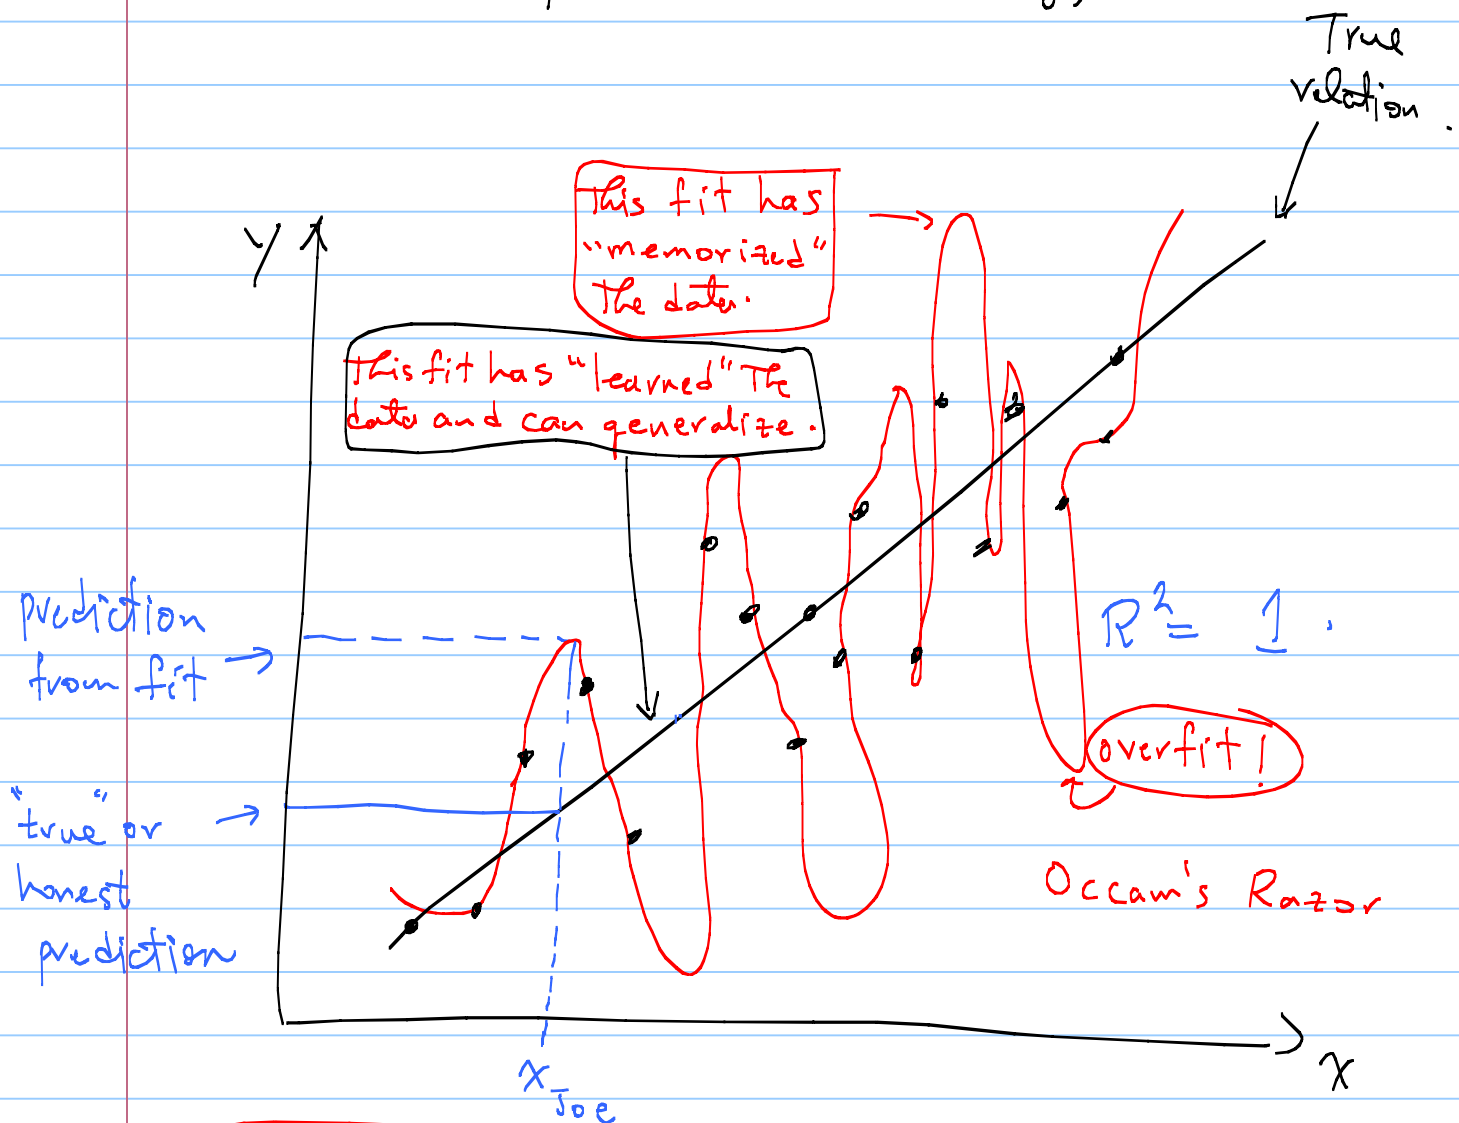 True
relation.
y
This fit has
"memorized"
The data.
This fit has "learned" The
data and can generalize.
prediction
from fit
R² = 1.
overfit!
"true" or
honest
prediction
Occam's Razor
x
x Joe